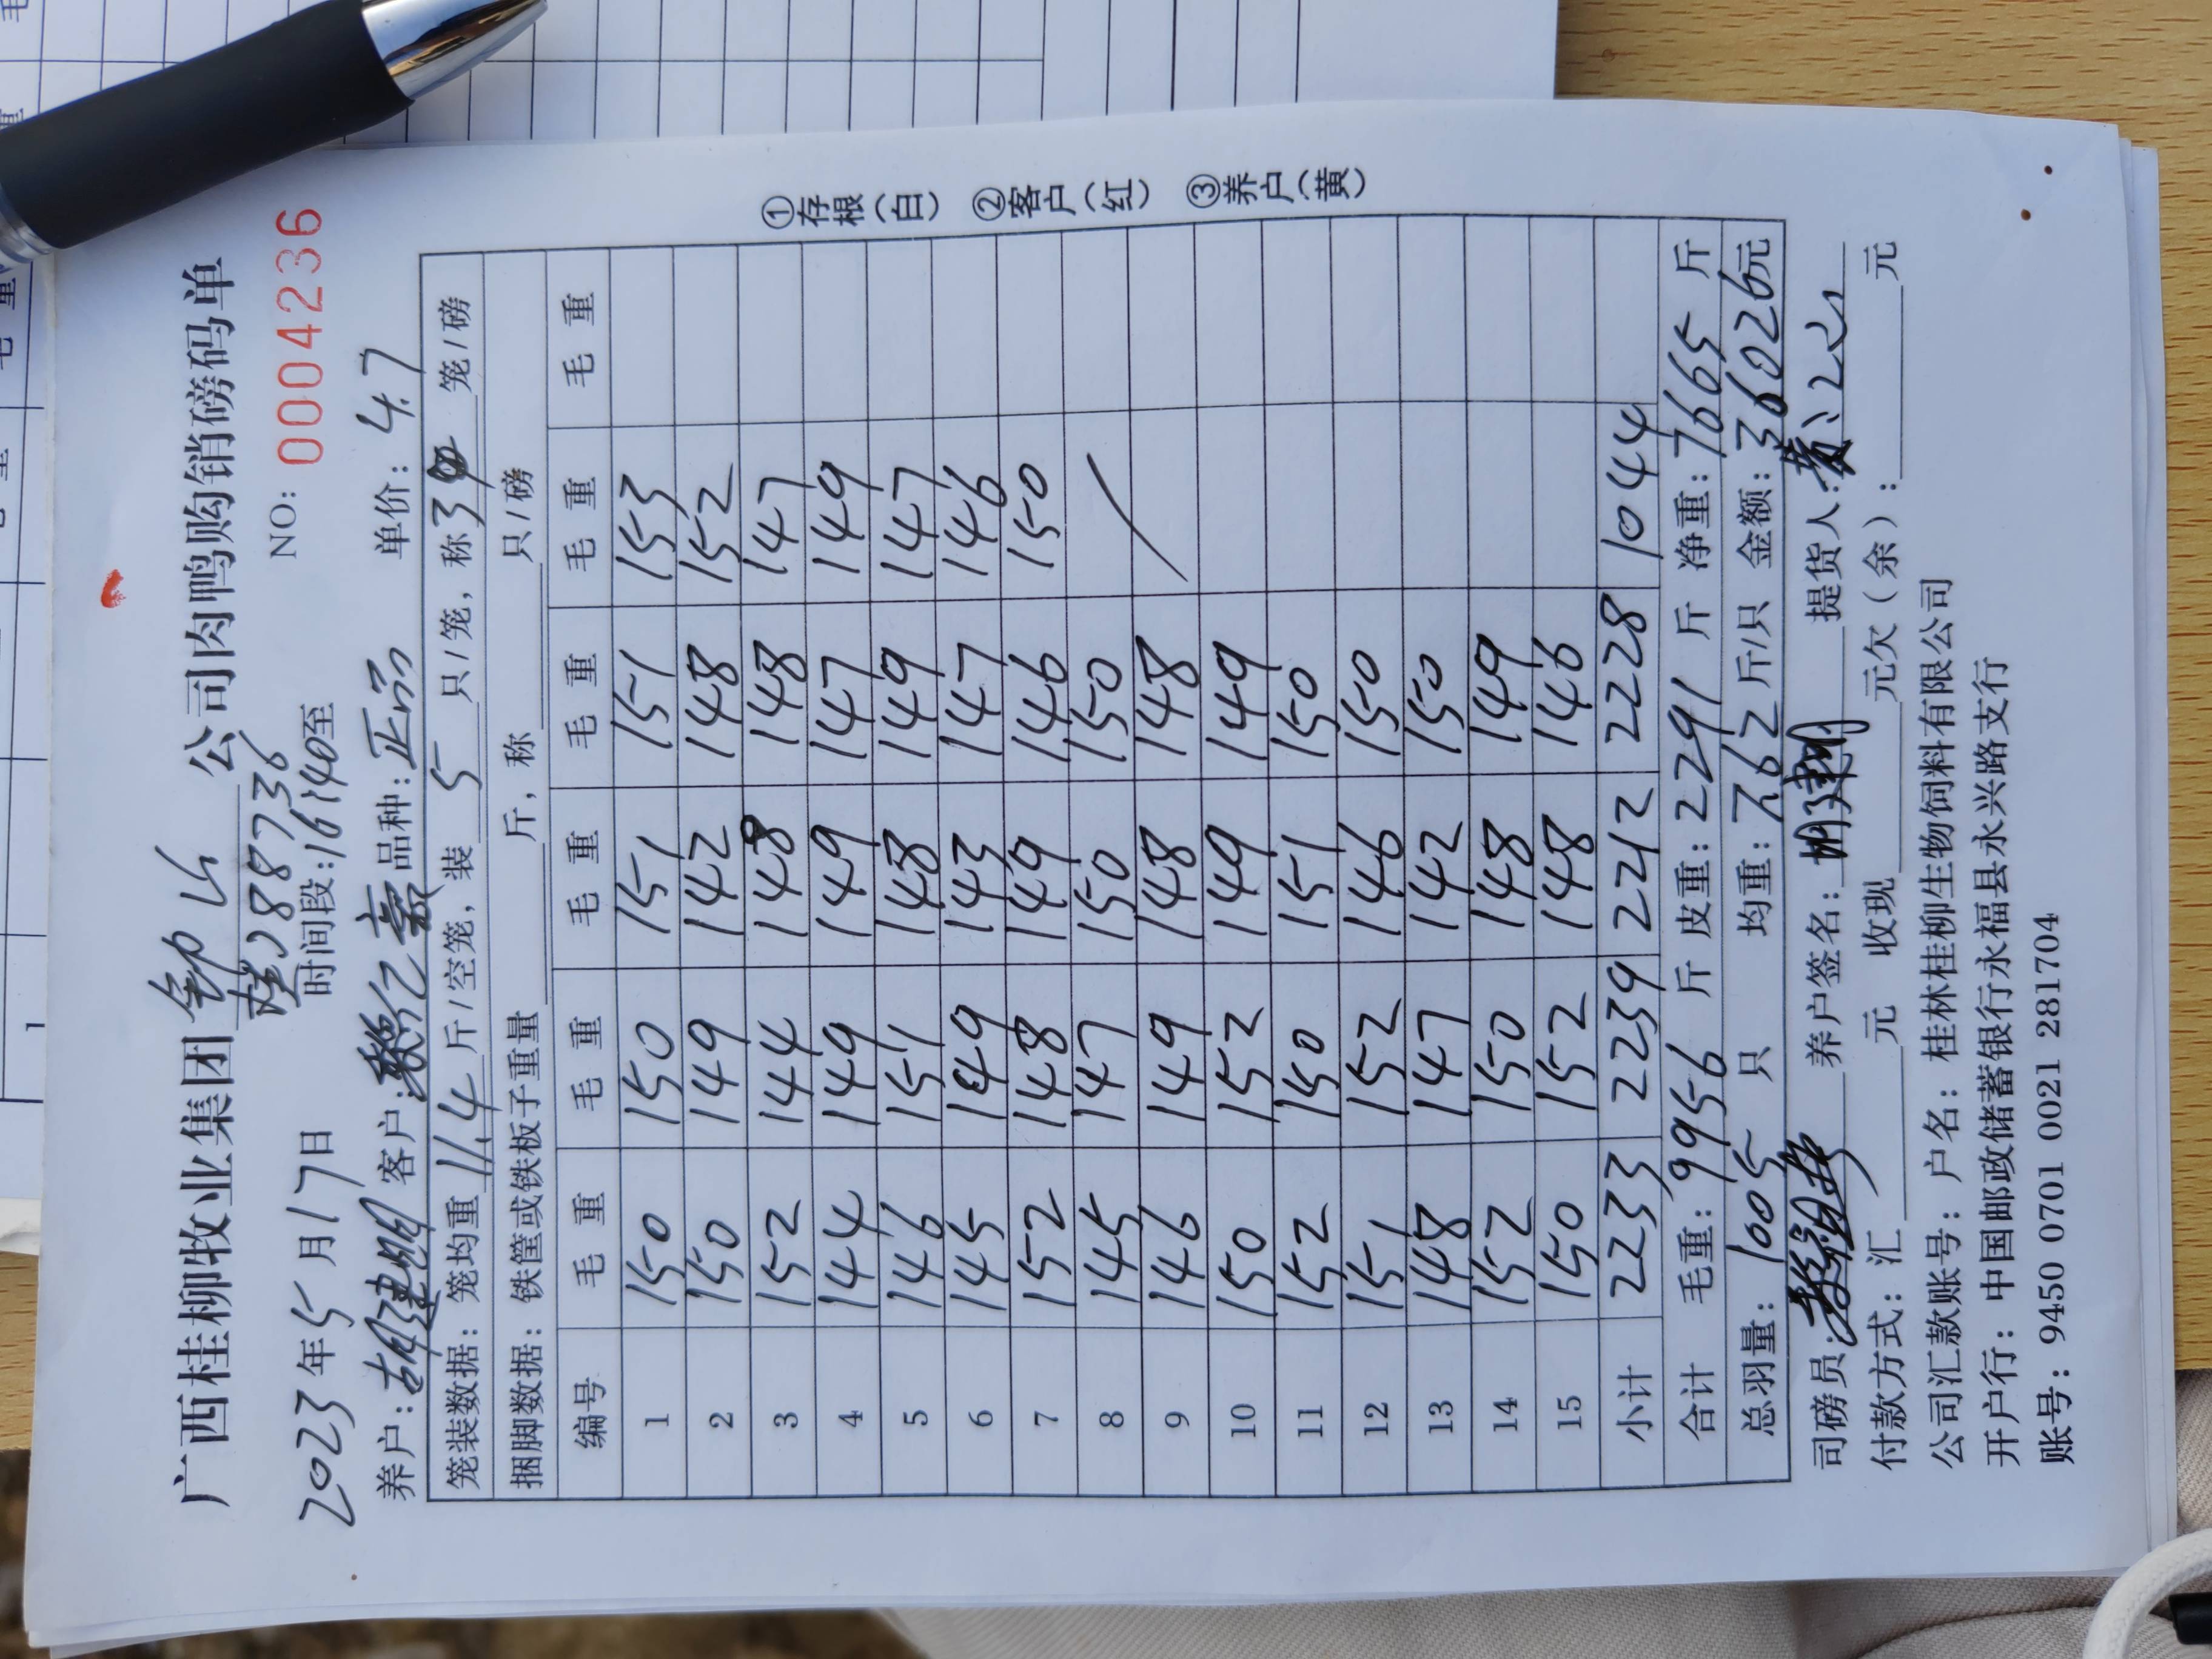 广西桂柳牧业集团 公司肉鸭购销磅码单
桂J88736
2023年5月17日 时间段:16:40至 NO: 0004236
养户:胡建明 客户: 品种:正品 单价: 4.7
笼装数据: 笼均重 11.4 斤/空笼, 装 5 只/笼, 称 3 笼/磅
捆脚数据: 铁筐或铁板子重量 斤, 称 只/磅
编号 毛重 毛重 毛重 毛重 毛重 毛重
1 150 150 151 151 153
2 150 149 142 148 152
3 152 144 148 148 147
4 144 149 149 147 149
5 146 151 148 149 147
6 145 149 143 147 146
7 152 148 149 146 150
8 145 147 150 150
9 146 149 148 148
10 150 152 149 149
11 152 150 151 150
12 151 152 146 150
13 148 147 142 150
14 152 150 148 149
15 150 152 148 146
小计 2233 2239 2212 2228 1044
合计 毛重: 9956 斤 皮重: 2291 斤 净重: 7665 斤
总羽量: 1005 只 均重: 7.62 斤/只 金额: 36026元
司磅员: 养户签名: 胡建明 提货人:
付款方式: 汇 元 收现 元欠(余): 元
公司汇款账号: 户名: 桂林桂柳生物饲料有限公司
开户行: 中国邮政储蓄银行永福县永兴路支行
账号: 9450 0701 0021 281704
①存根(白) ②客户(红) ③养户(黄)